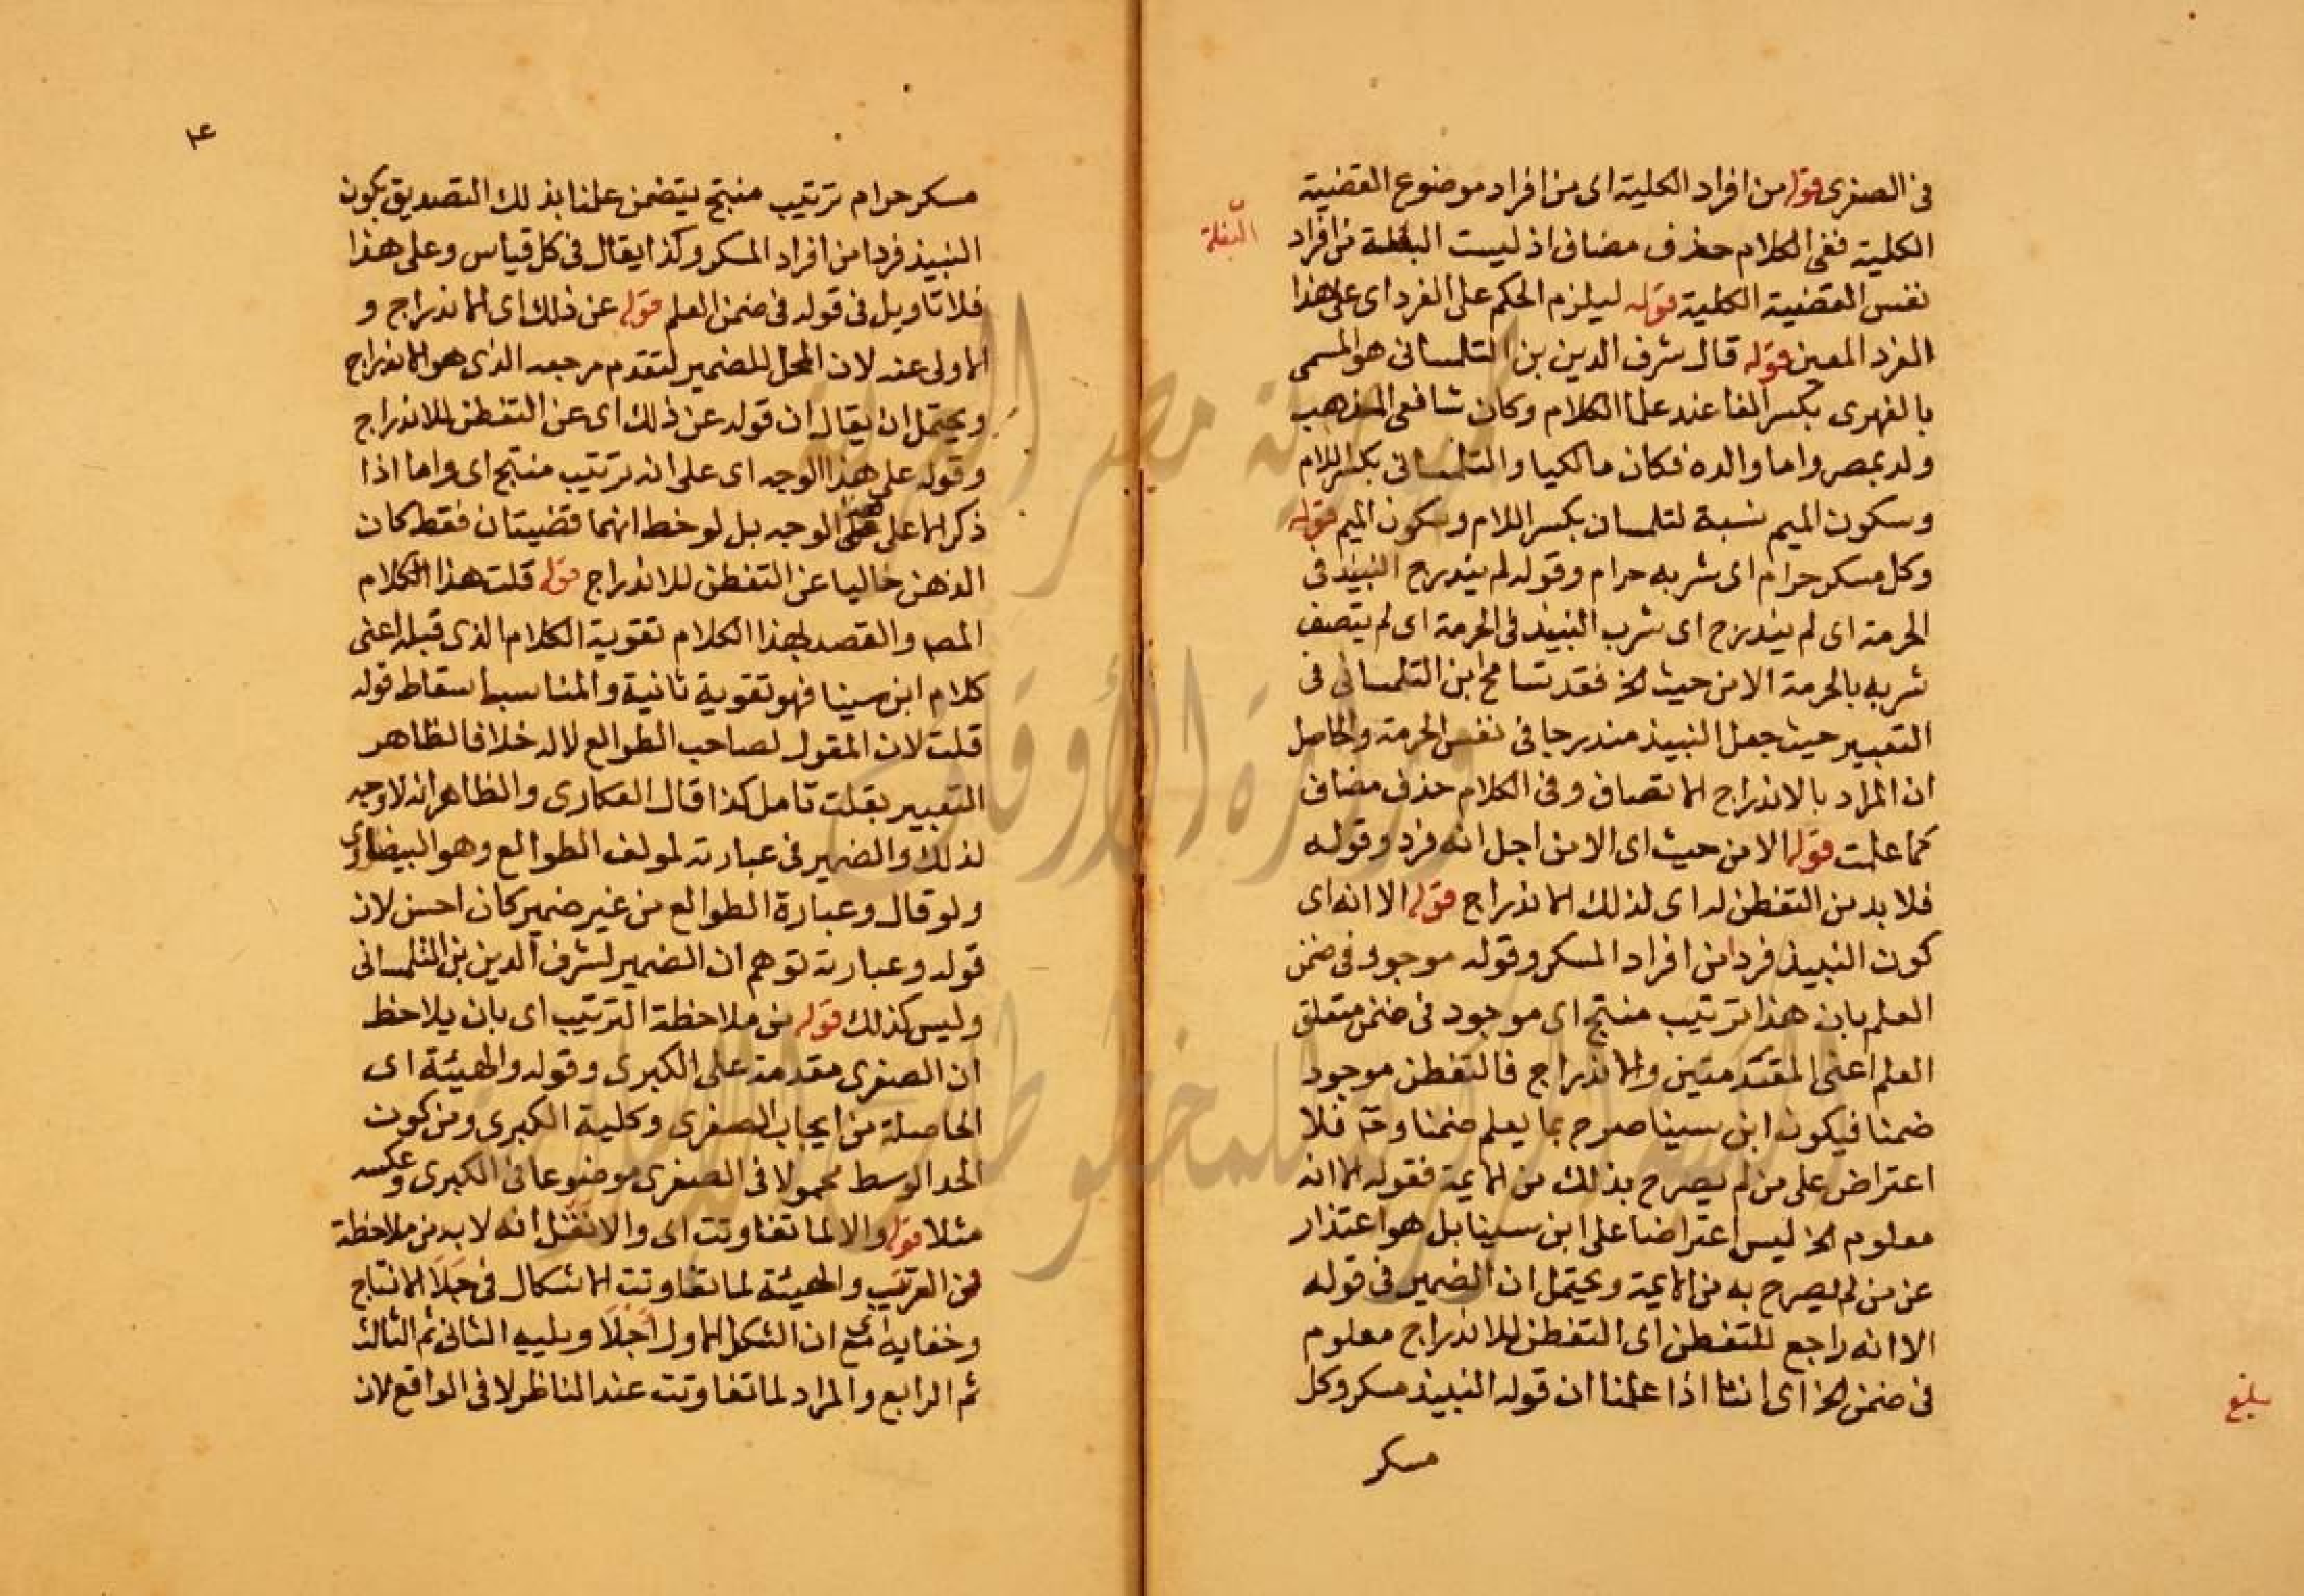 فى الصغرى قوله من افراد الكلية اى من افراد موضوع القضية
الكلية ففى الكلام حذف مضاف اذ ليست البغلة من افراد
البغلة
نفس القضية الكلية قوله ليلزم الحكم على الفرد اى على هذا
الفرد المعين قوله قال شرف الدين بن التلمسانى هو المسمى
بالفهرى بكسر الفا عند علما الكلام وكان شافعى المذهب
ولد بمصر واما والده فكان مالكيا والتلمسانى بكسر اللام
وسكون الميم نسبة لتلمسان بكسر اللام وسكون الميم قوله
وكل مسكر حرام اى شربه حرام وقوله لم يندرج النبيذ فى
الحرمة اى لم يندرج اى شرب النبيذ فى الحرمة اى لم يتصف
شربه بالحرمة الا من حيث الخ فقد تسامح ابن التلمسانى فى
التعبير حيث جعل النبيذ مندرجا فى نفس الحرمة والحاصل
ان المراد بالاندراج الاتصاف وفى الكلام حذف مضاف
كما علمت قوله الا من حيث اى الا من اجل انه فرد وقوله
فلا بد من التفطن له اى لذلك الاندراج قوله الا انه اى
كون النبيذ فردا من افراد المسكر وقوله موجود فى ضمن
العلم بان هذا ترتيب منتج اى موجود فى ضمن متعلق
العلم اعنى المقدمتين والاندراج فالتفطن موجود
ضمنا فيكون ابن سينا صرح بما يعلم ضمنا وح فلا
اعتراض على من لم يصرح بذلك من الايمة فقوله الا انه
معلوم الخ ليس اعتراضا على ابن سينا بل هو اعتذار
عن من لم يصرح به من الايمة ويحتمل ان الضمير فى قوله
الا انه راجع للتفطن اى التفطن للاندراج معلوم
فى ضمن الخ اى اننا اذا علمنا ان قوله النبيذ مسكر وكل
بلغ
مسكر
٤
مسكر حرام ترتيب منتج يتضمن علمنا بذلك التصديق بكون
النبيذ فردا من افراد المسكر وكذا يقال فى كل قياس وعلى هذا
فلا تاويل فى قوله فى ضمن العلم قوله عن ذلك اى الاندراج و
الاولى عنه لان المحل للضمير لتقدم مرجعه الذى هو الاندراج
ويحتمل ان يقال ان قوله عن ذلك اى عن التفطن للاندراج
وقوله على هذا الوجه اى على انه ترتيب منتج اى واما اذا
ذكر لا على هذا الوجه بل لوحظ انهما قضيتان فقط كان
الذهن خاليا عن التفطن للاندراج قوله قلت هذا الكلام
المصـ والقصد بهذا الكلام تقوية الكلام الذى قبله اعنى
كلام ابن سينا فهو تقوية ثانية والمناسب اسقاط قوله
قلت لان المقول لصاحب الطوالع لا له خلافا لظاهر
التعبير بقلت تامل كذا قال العكارى والظاهر انه لا وجه
لذلك والضمير فى عبارته لمولف الطوالع وهو البيضاوى
ولو قال وعبارة الطوالع من غير ضمير كان احسن لان
قوله وعبارته توهم ان الضمير لشرف الدين بن التلمسانى
وليس كذلك قوله من ملاحظة الترتيب اى بان يلاحظ
ان الصغرى مقدمة على الكبرى وقوله والهيئة اى
الحاصلة من ايجاب الصغرى وكلية الكبرى ومن كون
الحد الوسط محمولا فى الصغرى موضوعا فى الكبرى وعكسه
مثلا قوله والا لما تفاوتت اى والا نقل انه لا بد من ملاحظة
من الترتيب والهيئة لما تفاوتت الاشكال فى جلا الانتاج
وخفايه اى مع ان الشكل الاول اجلا ويليه الثانى ثم الثالث
ثم الرابع والمراد لما تفاوتت عند الناظر لا فى الواقع لان